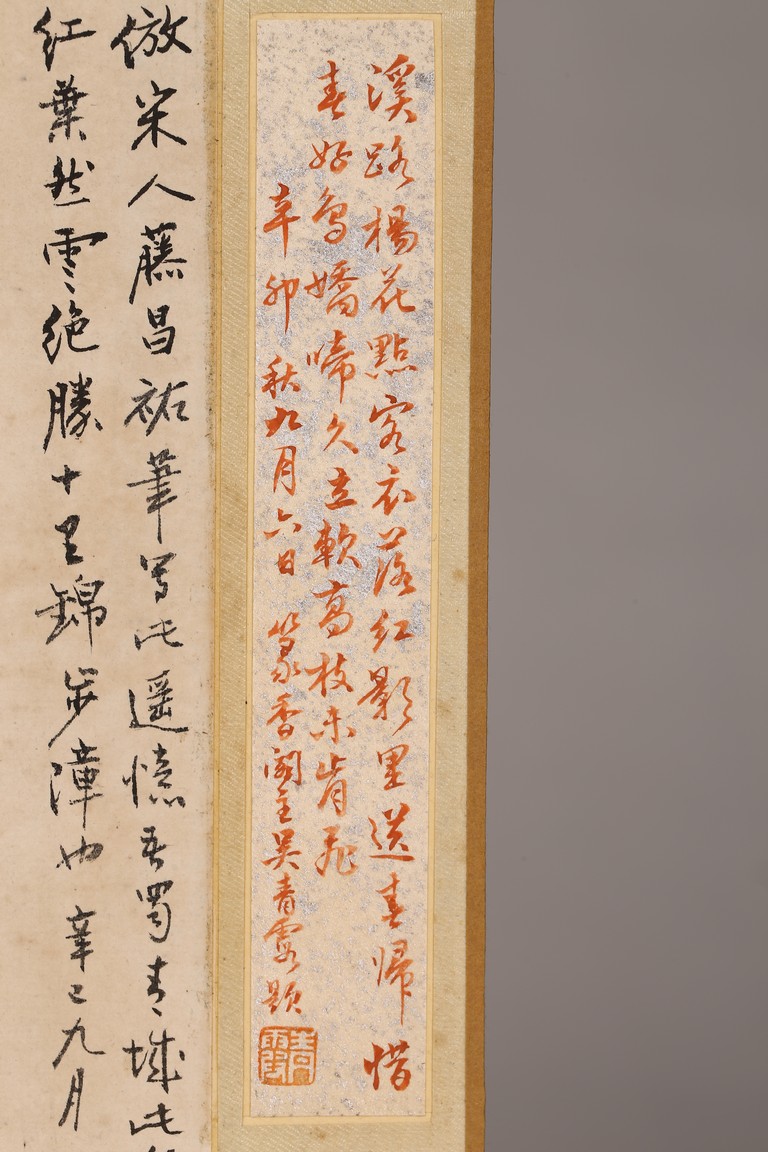 溪路楊花點客衣落紅影里送春歸惜
春好鳥嬌啼久立軟高枝未肯飛
辛卯秋九月六日 篆香閣主吳青霞題
青霞
倣宋人藤昌祐筆寫此遙憶吾蜀青城此
紅葉然雲絕勝十里錦步漳也 辛巳九月